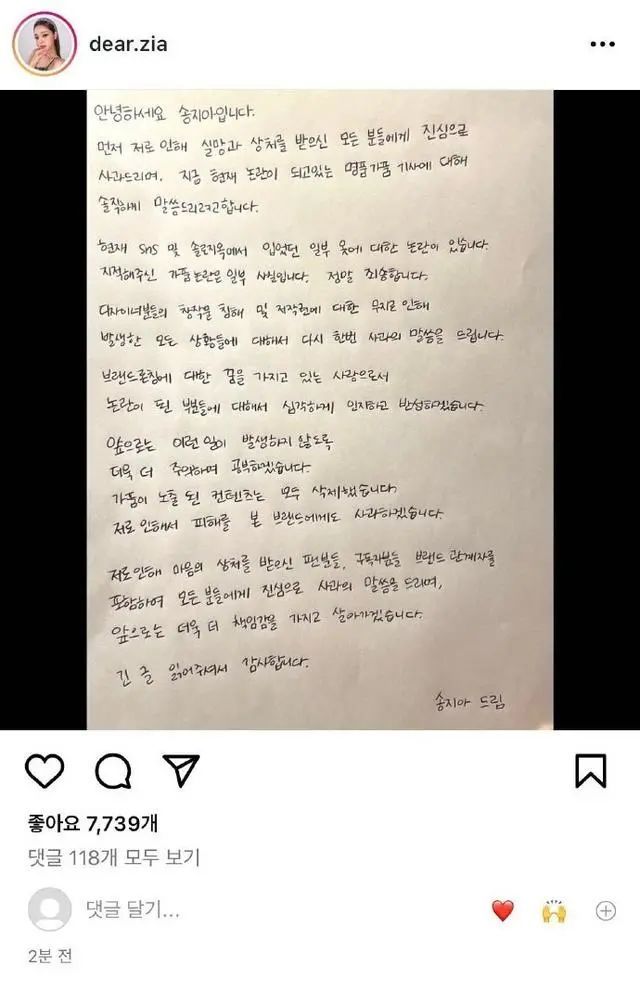 dear.zia
안녕하세요 송지아입니다.
먼저 저로 인해 실망과 상처를 받으신 모든 분들에게 진심으로
사과드리며, 지금 현재 논란이 되고있는 명품가품 기사에 대해
솔직하게 말씀드리려고합니다.
현재 sns 및 솔로지옥에서 입었던 일부 옷에 대한 논란이 있습니다.
지적해주신 가품논란은 일부 사실입니다. 정말 죄송합니다.
디자이너분들의 창작물 침해 및 저작권에 대한 무지로 인해
발생한 모든 상황들에 대해서 다시 한번 사과의 말씀을 드립니다.
브랜드론칭에 대한 꿈을 가지고 있는 사람으로서
논란이 된 부분들에 대해서 심각하게 인지하고 반성하겠습니다.
앞으로는 이런 일이 발생하지 않도록
더욱 더 주의하며 공부하겠습니다.
가품이 노출 된 컨텐츠는 모두 삭제했습니다.
저로 인해서 피해를 본 브랜드에게도 사과하겠습니다.
저로인해 마음의 상처를 받으신 팬분들, 구독자분들 브랜드 관계자를
포함하여 모든분들에게 진심으로 사과의 말씀을 드리며,
앞으로는 더욱 더 책임감을 가지고 살아가겠습니다.
긴 글 읽어주셔서 감사합니다.
송지아 드림
좋아요 7,739개
댓글 118개 모두 보기
댓글 달기...
2분 전